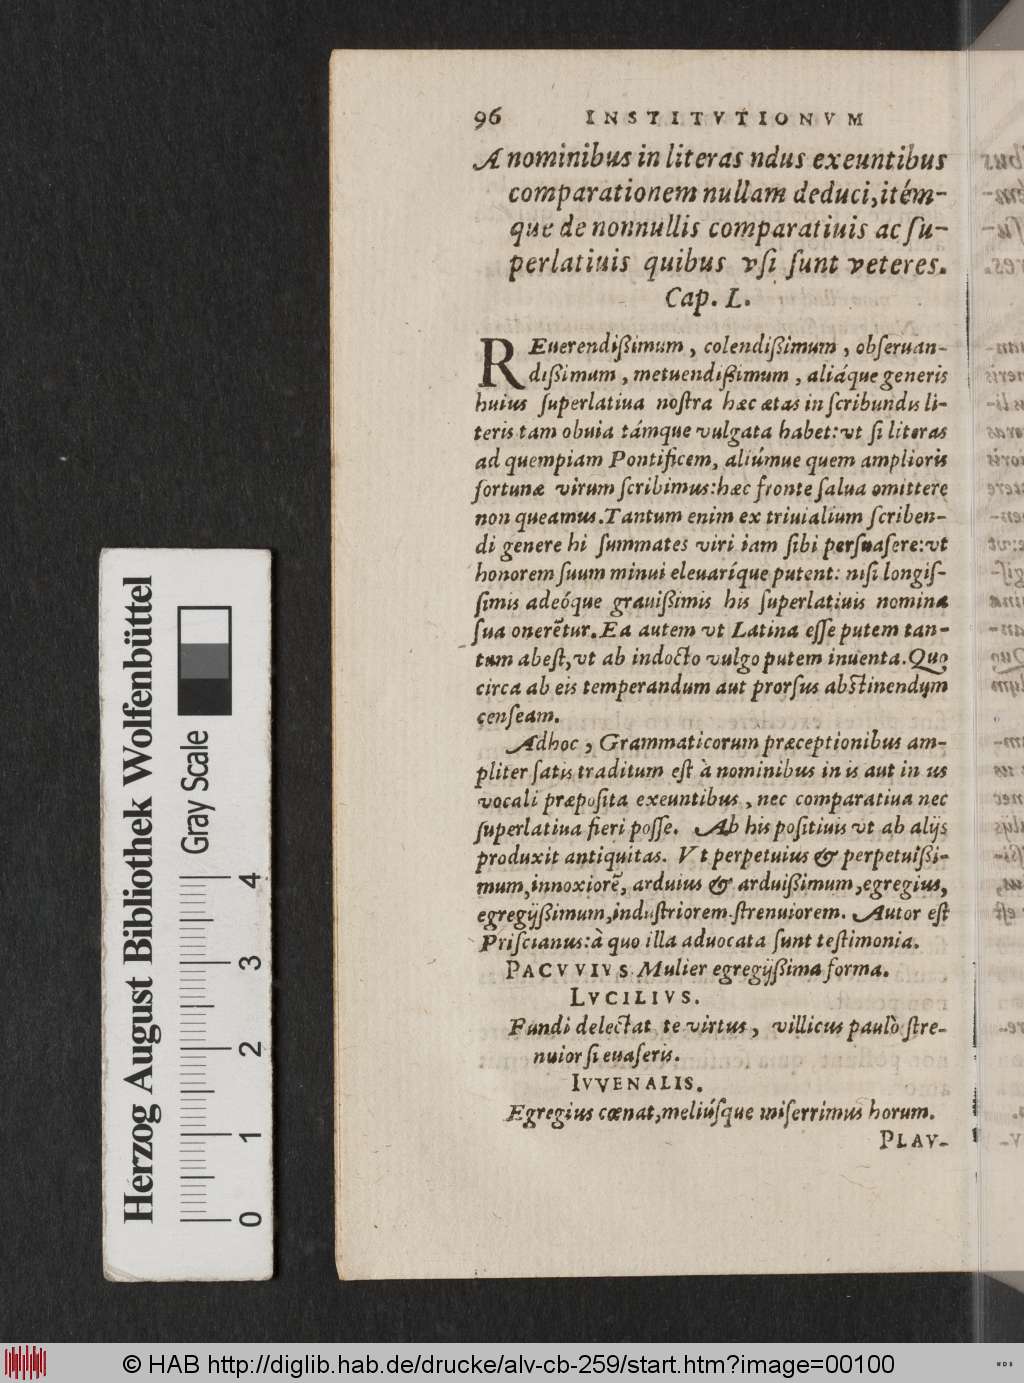 96 INSTITVTIONVM
A nominibus in literas ndus exeuntibus
comparationem nullam deduci, itém-
que de nonnullis comparatiuis ac ſu-
perlatiuis quibus vſi ſunt veteres.
Cap. L.
REuerendißimum, colendißimum, obſeruan-
dißimum, metuendißimum, aliáque generis
huius ſuperlatiua noſtra hæc ætas in ſcribundis li-
teris tam obuia támque vulgata habet: vt ſi literas
ad quempiam Pontificem, aliúmue quem amplioris
fortunæ virum ſcribimus: hæc fronte ſalua omittere
non queamus. Tantum enim ex triuialium ſcriben-
di genere hi ſummates viri iam ſibi perſuaſere: vt
honorem ſuum minui eleuaríque putent: niſi longiſ-
ſimis adeóque grauißimis his ſuperlatiuis nomina
ſua onerẽtur. Ea autem vt Latina eſſe putem tan-
tum abeſt, vt ab indocto vulgo putem inuenta. Quo
circa ab eis temperandum aut prorſus abſtinendum
cenſeam.
Adhoc, Grammaticorum præceptionibus am-
pliter ſatis traditum eſt à nominibus in is aut in us
vocali præpoſita exeuntibus, nec comparatiua nec
ſuperlatiua fieri poſſe. Ab his poſitiuis vt ab alijs
produxit antiquitas. Vt perpetuius & perpetuißi-
mum, innoxiorẽ, arduius & arduißimum, egregius,
egregijßimum, induſtriorem. ſtrenuiorem. Autor eſt
Priſcianus: à quo illa aduocata ſunt teſtimonia.
PACVVIVS. Mulier egregijßima forma.
LVCILIVS.
Fundi delectat te virtus, villicus paulò ſtre-
nuior ſi euaſeris.
IVVENALIS.
Egregius cœnat, meliúſque miſerrimus horum.
PLAV-
Herzog August Bibliothek Wolfenbüttel
Gray Scale
0 1 2 3 4
© HAB http://diglib.hab.de/drucke/alv-cb-259/start.htm?image=00100